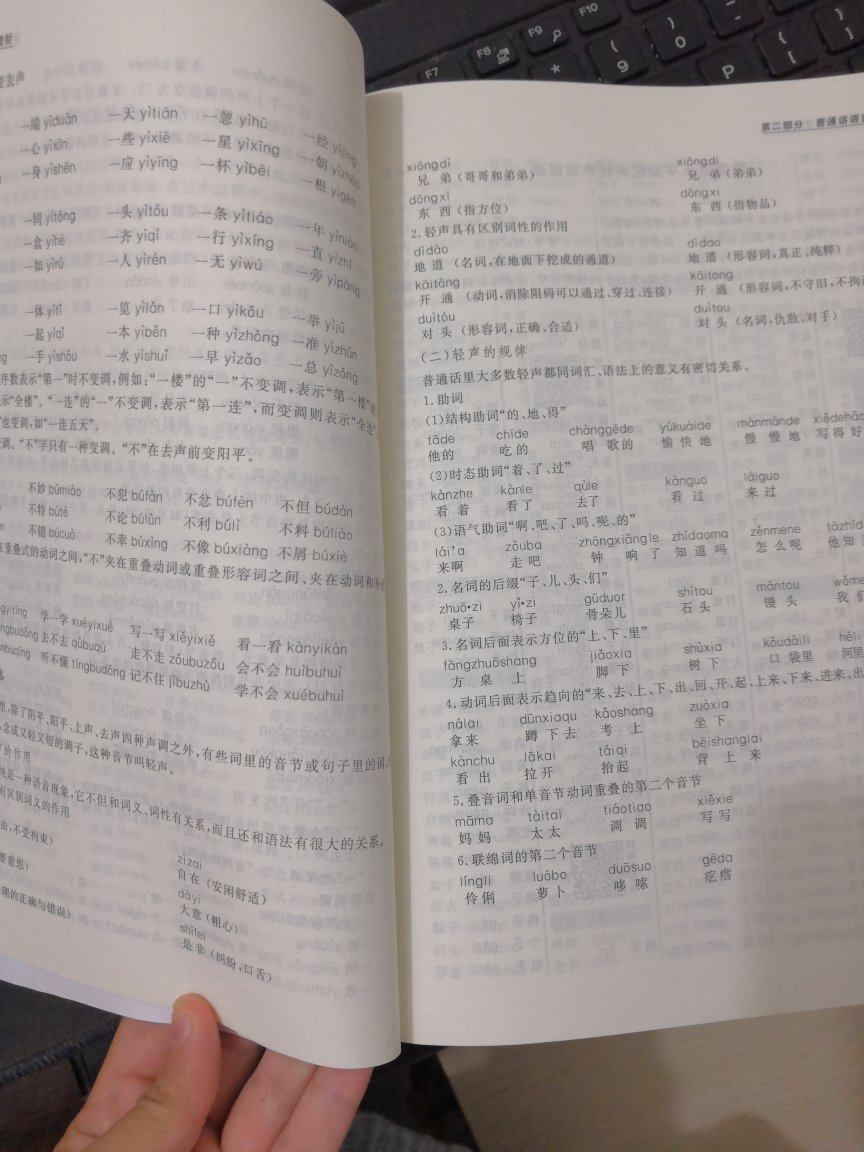 教材
变去声
一端 yìduān 一天 yìtiān 一忽 yìhū 一经 yìjīng
一心 yìxīn 一些 yìxiē 一星 yìxīng 一朝 yìzhāo
一身 yìshēn 一应 yìyīng 一杯 yìbēi 一根 yìgēn
一同 yìtóng 一头 yìtóu 一条 yìtiáo 一年 yìnián
一盒 yìhé 一齐 yìqí 一行 yìxíng 一直 yìzhí
一如 yìrú 一人 yìrén 一无 yìwú 一旁 yìpáng
一体 yìtǐ 一览 yìlǎn 一口 yìkǒu 一举 yìjǔ
一起 yìqǐ 一本 yìběn 一种 yìzhǒng 一准 yìzhǔn
一手 yìshǒu 一水 yìshuǐ 一早 yìzǎo 一总 yìzǒng
序数表示“第一”时不变调,例如:“一楼”的“一”不变调,表示“第一楼”
示“全楼”。“一连”的“一”不变调,表示“第一连”,而变调则表示“全连”
也变调,如“一连五天”。
变调。“不”字只有一种变调。“不”在去声前变阳平。
不妙 búmiào 不犯 búfàn 不忿 búfèn 不但 búdàn
不特 bútè 不论 búlùn 不利 búlì 不料 búliào
不错 búcuò 不幸 búxìng 不像 búxiàng 不屑 búxiè
在重叠式的动词之间,“不”夹在重叠动词或重叠形容词之间、夹在动词和补
学一学 xuéyixué 写一写 xiěyixiě 看一看 kànyikàn
去不去 qùbuqù 走不走 zǒubuzǒu 会不会 huìbuhuì
听不懂 tīngbudǒng 记不住 jìbuzhù 学不会 xuébuhuì
里,除了阴平、阳平、上声、去声四种声调之外,有些词里的音节或句子里的词,
念成又轻又短的调子,这种音节叫轻声。
的作用
纯是一种语音现象,它不但和词义、词性有关系,而且还和语法有很大的关系。
有区别词义的作用
zìzai
由,不受拘束) 自在(安闲舒适)
dàyi
要意思) 大意(粗心)
shìfei
理的正确与错误) 是非(纠纷,口舌)
第二部分 普通话语音
xiōngdì xiōngdi
兄 弟(哥哥和弟弟) 兄 弟(弟弟)
dōngxī dōngxi
东 西(指方位) 东 西(指物品)
2.轻声具有区别词性的作用
dìdào dìdao
地 道(名词,在地面下挖成的通道) 地 道(形容词,真正、纯粹)
kāitōng kāitong
开 通(动词,消除阻碍可以通过、穿过、连接) 开 通(形容词,不守旧,不拘
duìtóu duìtou
对 头(形容词,正确、合适) 对 头(名词,仇敌、对手)
(二)轻声的规律
普通话里大多数轻声都同词汇、语法上的意义有密切关系。
1.助词
(1)结构助词“的、地、得”
tāde chīde chànggēde yúkuàide mànmànde xiědehǎo
他的 吃的 唱 歌的 愉 快 地 慢 慢 地 写 得 好
(2)时态助词“着、了、过”
kànzhe kànle qùle kànguo láiguo
看 着 看 了 去了 看 过 来 过
(3)语气助词“啊、吧、了、吗、呢、的”
lái'a zǒuba zhōngxiǎngle zhīdaoma zěnmene
来啊 走 吧 钟 响 了 知 道 吗 怎 么 呢 他知
2.名词的后缀“子、儿、头、们”
zhuō•zi yǐ•zi gūduor shítou mántou wǒmen
桌子 椅子 骨朵儿 石 头 馒 头 我 们
3.名词后面表示方位的“上、下、里”
fāngzhuōshang jiǎoxia shùxia kǒudàili héli
方 桌 上 脚 下 树 下 口 袋里 河里
4.动词后面表示趋向的“来、去、上、下、出、回、开、起、上来、下来、进来、出
nálai dūnxiaqu kǎoshang zuòxia
拿 来 蹲 下 去 考 上 坐 下
kànchu lākai táiqi bēishanglai
看 出 拉 开 抬起 背 上 来
5.叠音词和单音节动词重叠的第二个音节
māma tàitai tiáotiao xiěxie
妈 妈 太 太 调 调 写 写
6.联绵词的第二个音节
língli luóbo duōsuo gēda
伶 俐 萝 卜 哆 嗦 疙 瘩
F7
F8
F9
F10
*
(
9
)
0
P
{
[
}
]